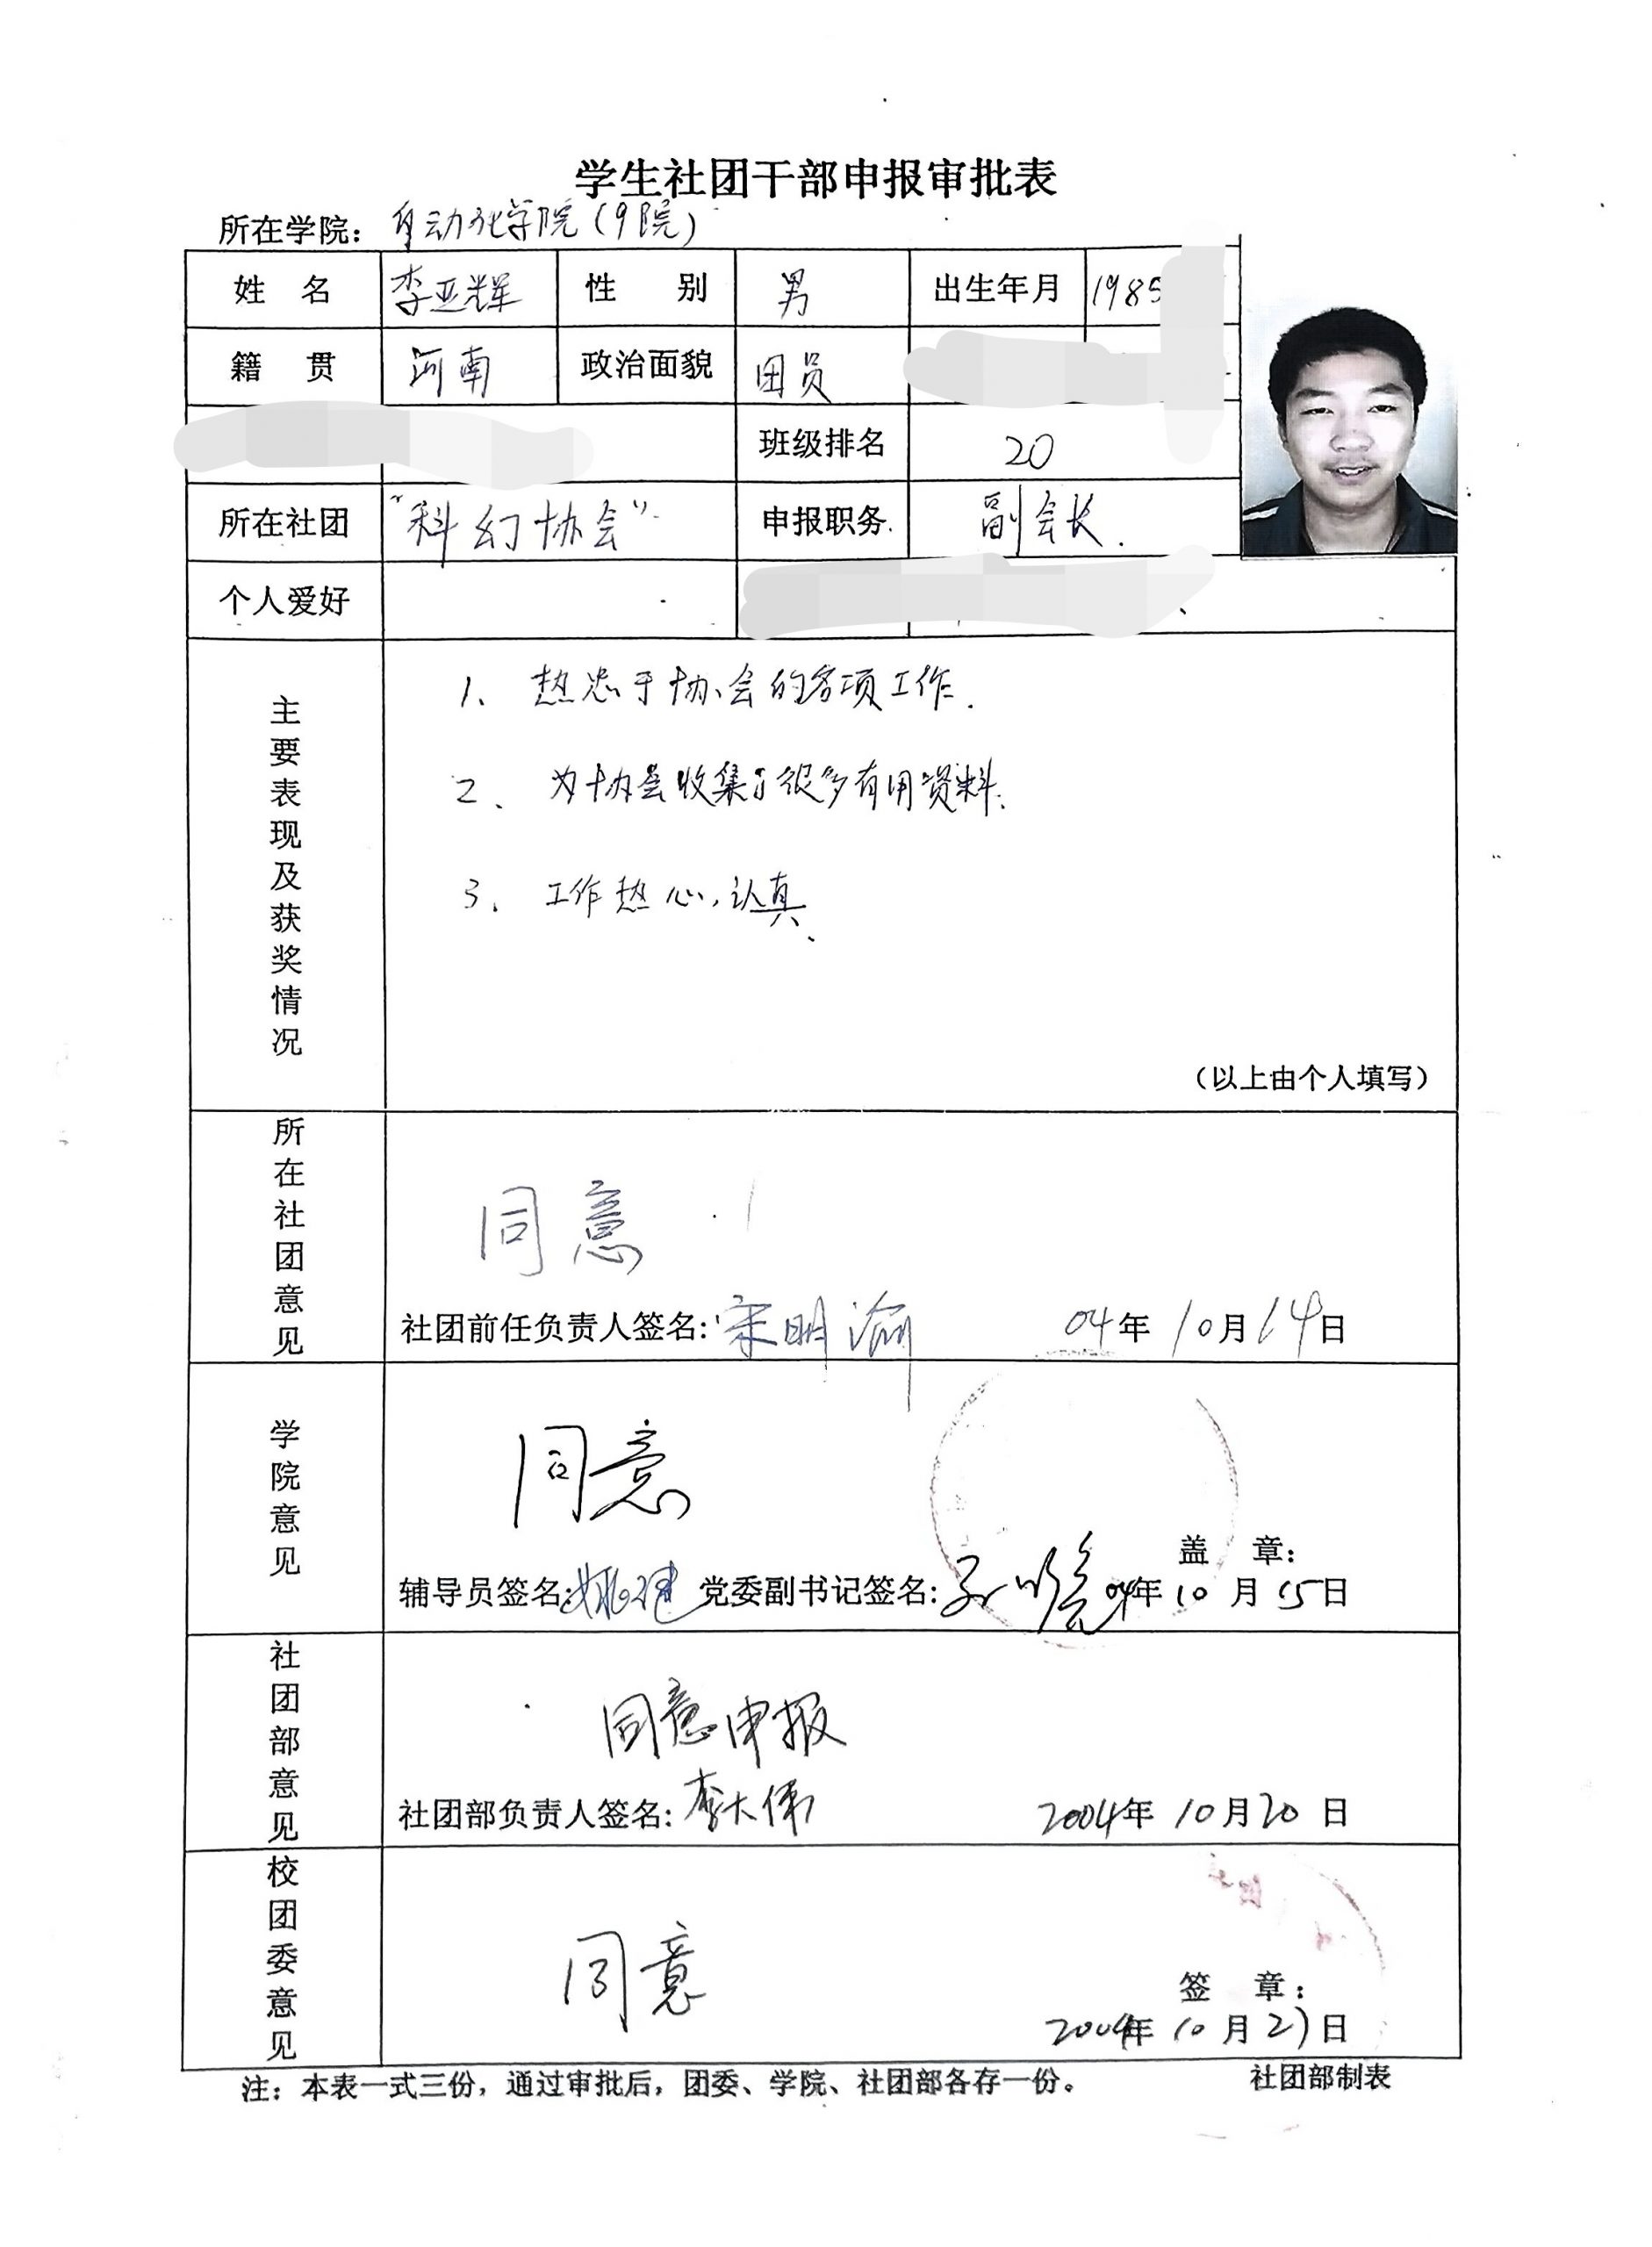 学生社团干部申报审批表
所在学院：自动化学院（9院）
姓 名 李亚辉 性 别 男 出生年月 1985
籍 贯 河南 政治面貌 团员
班级排名 20
所在社团 “科幻协会” 申报职务 副会长.
个人爱好
主要表现及获奖情况
1、热忠于协会的各项工作.
2、为协会收集了很多有用资料.
3、工作热心,认真、
（以上由个人填写）
所在社团意见
同意
社团前任负责人签名：宋明渝 04年10月14日
学院意见
同意
盖 章：
辅导员签名：姚建 党委副书记签名： 04年10月15日
社团部意见
同意申报
社团部负责人签名：李大伟 2004年10月20日
校团委意见
同意
签 章：
2004年10月21日
注：本表一式三份，通过审批后，团委、学院、社团部各存一份。 社团部制表